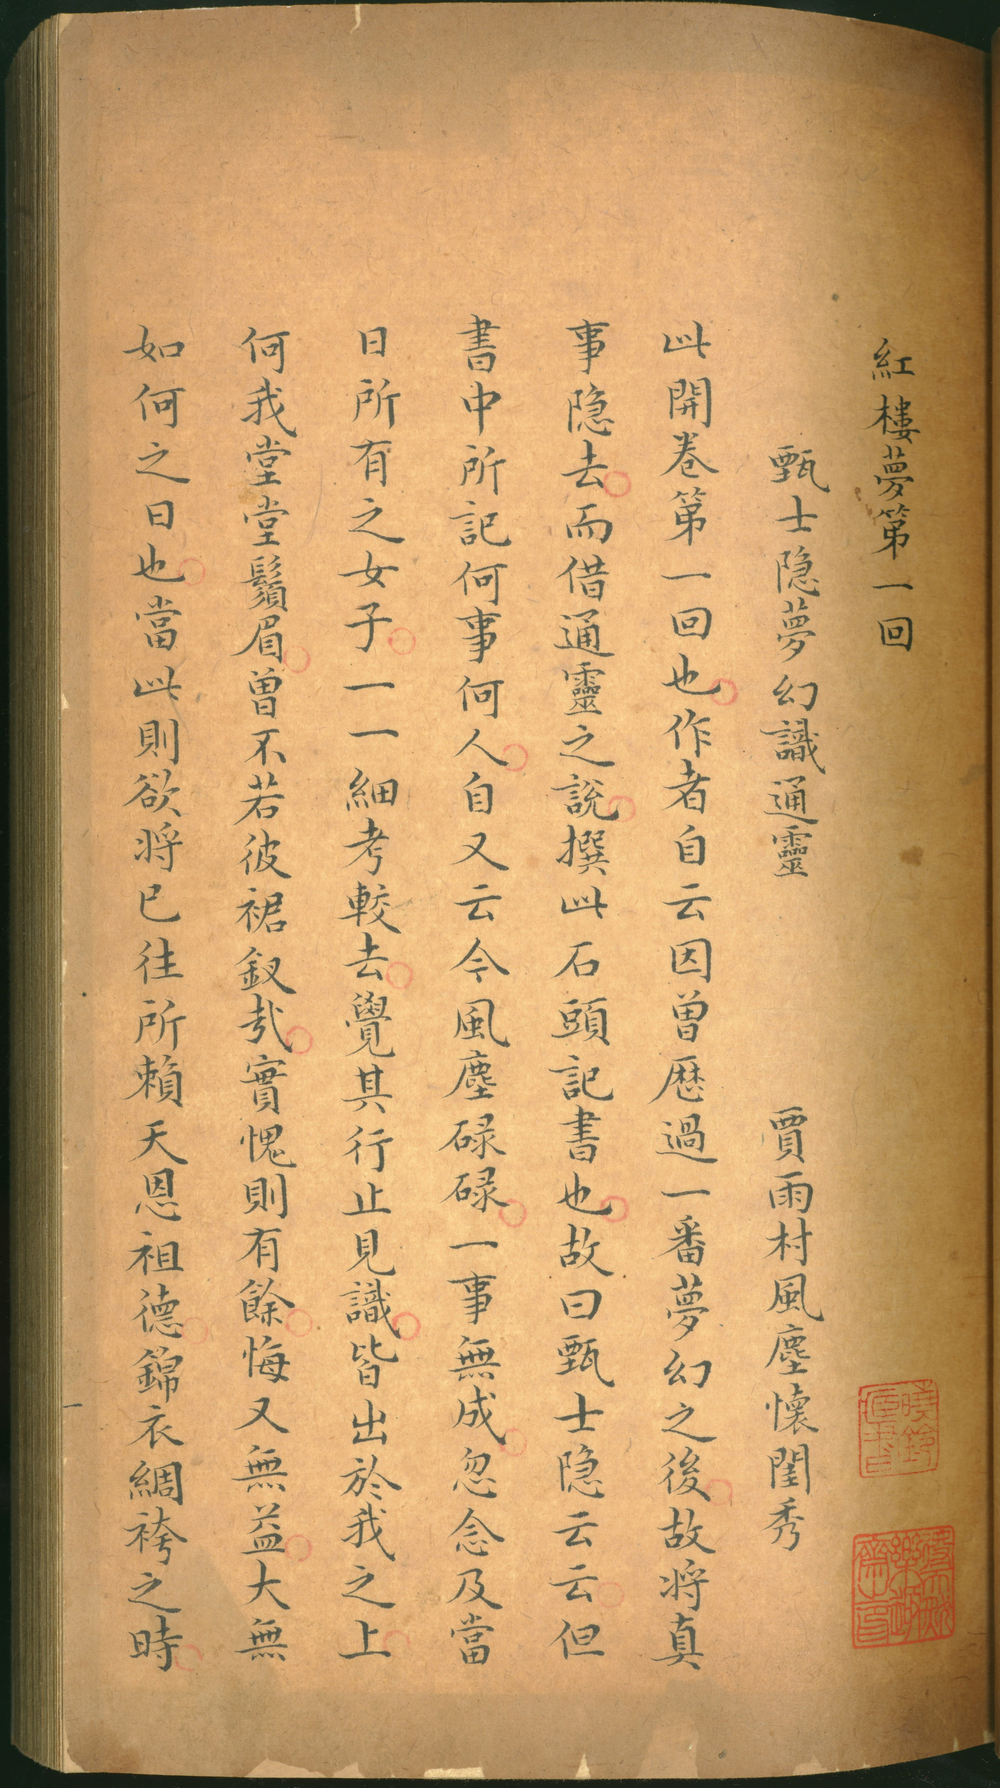 紅樓夢第一回
甄士隐夢幻識通靈　賈雨村風塵懷閨秀
此開卷第一回也作者自云因曾歷過一番夢幻之後故将真
事隐去而借通靈之說撰此石頭記書也故曰甄士隐云云但
書中所記何事何人自又云今風塵碌碌一事無成忽念及當
日所有之女子一一細考較去覺其行止見識皆出於我之上
何我堂堂鬚眉曾不若彼裙釵哉實愧則有餘悔又無益大無
如何之日也當此則欲将已往所賴天恩祖德錦衣綢袴之時
一